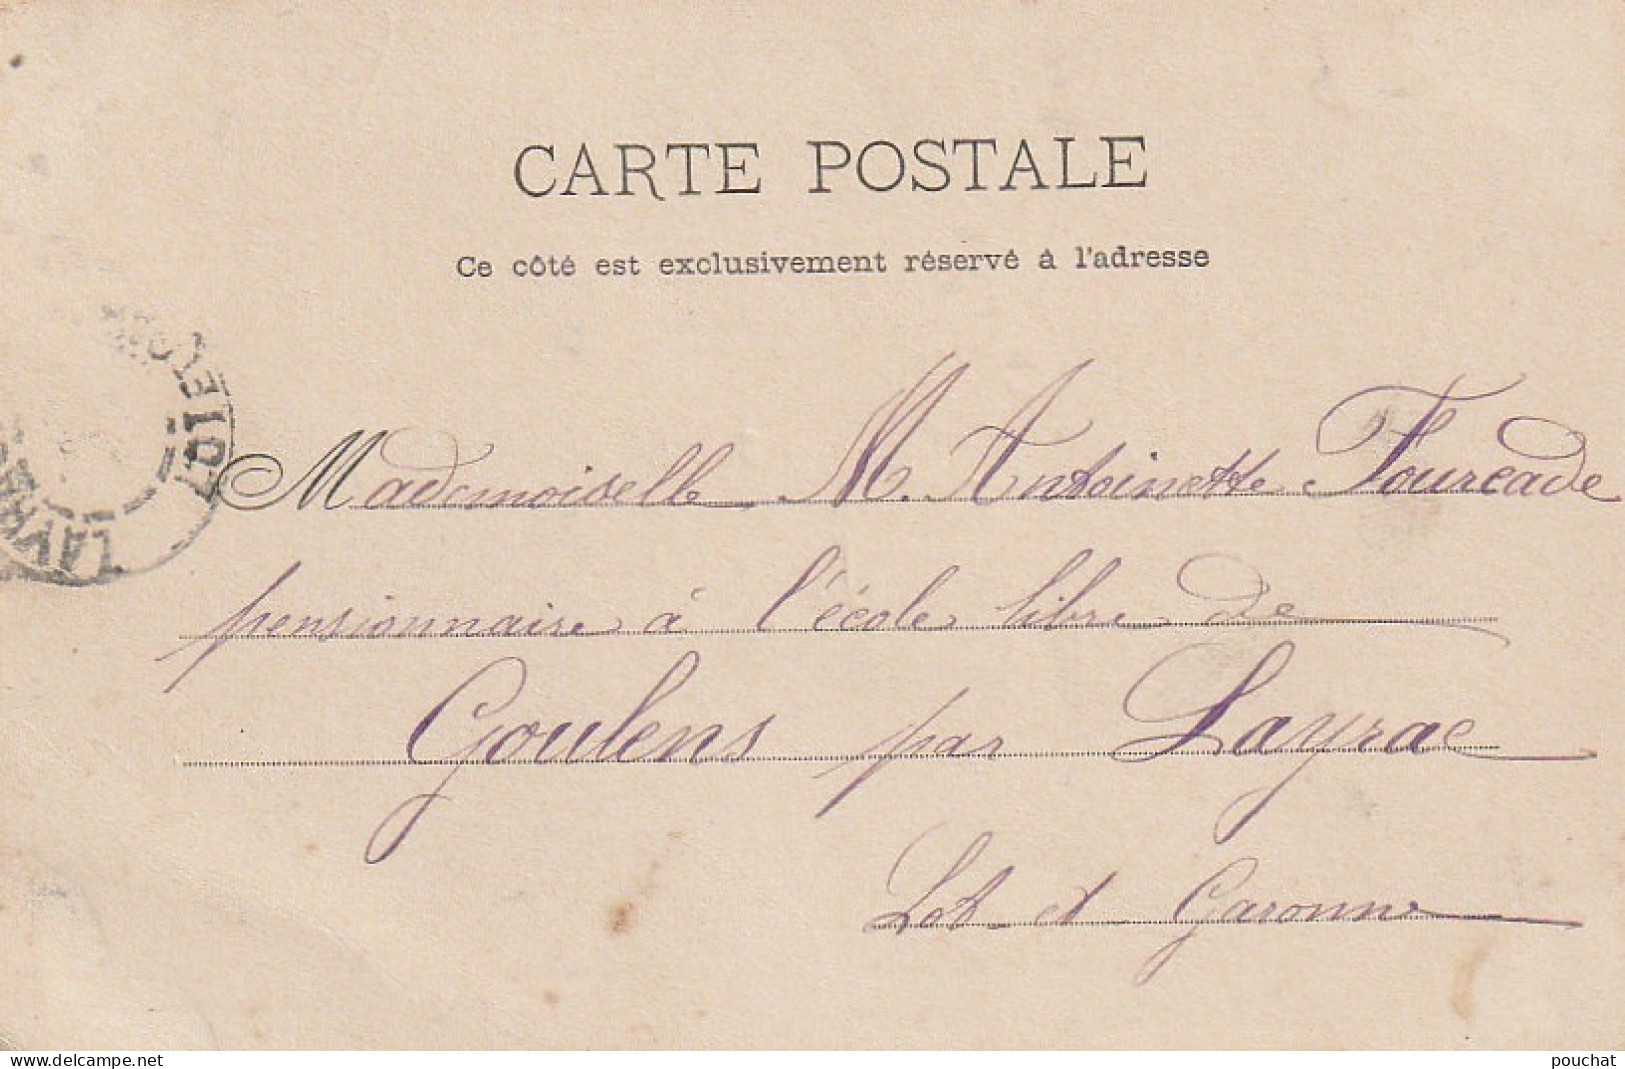 CARTE POSTALE
Ce côté est exclusivement réservé à l'adresse
Mademoiselle M. Antoinette Fourcade
pensionnaire à l'école libre de
Goulens par Layrac
Lot et Garonne
LAYRAC
LOT ET
www.delcampe.net
pouchat